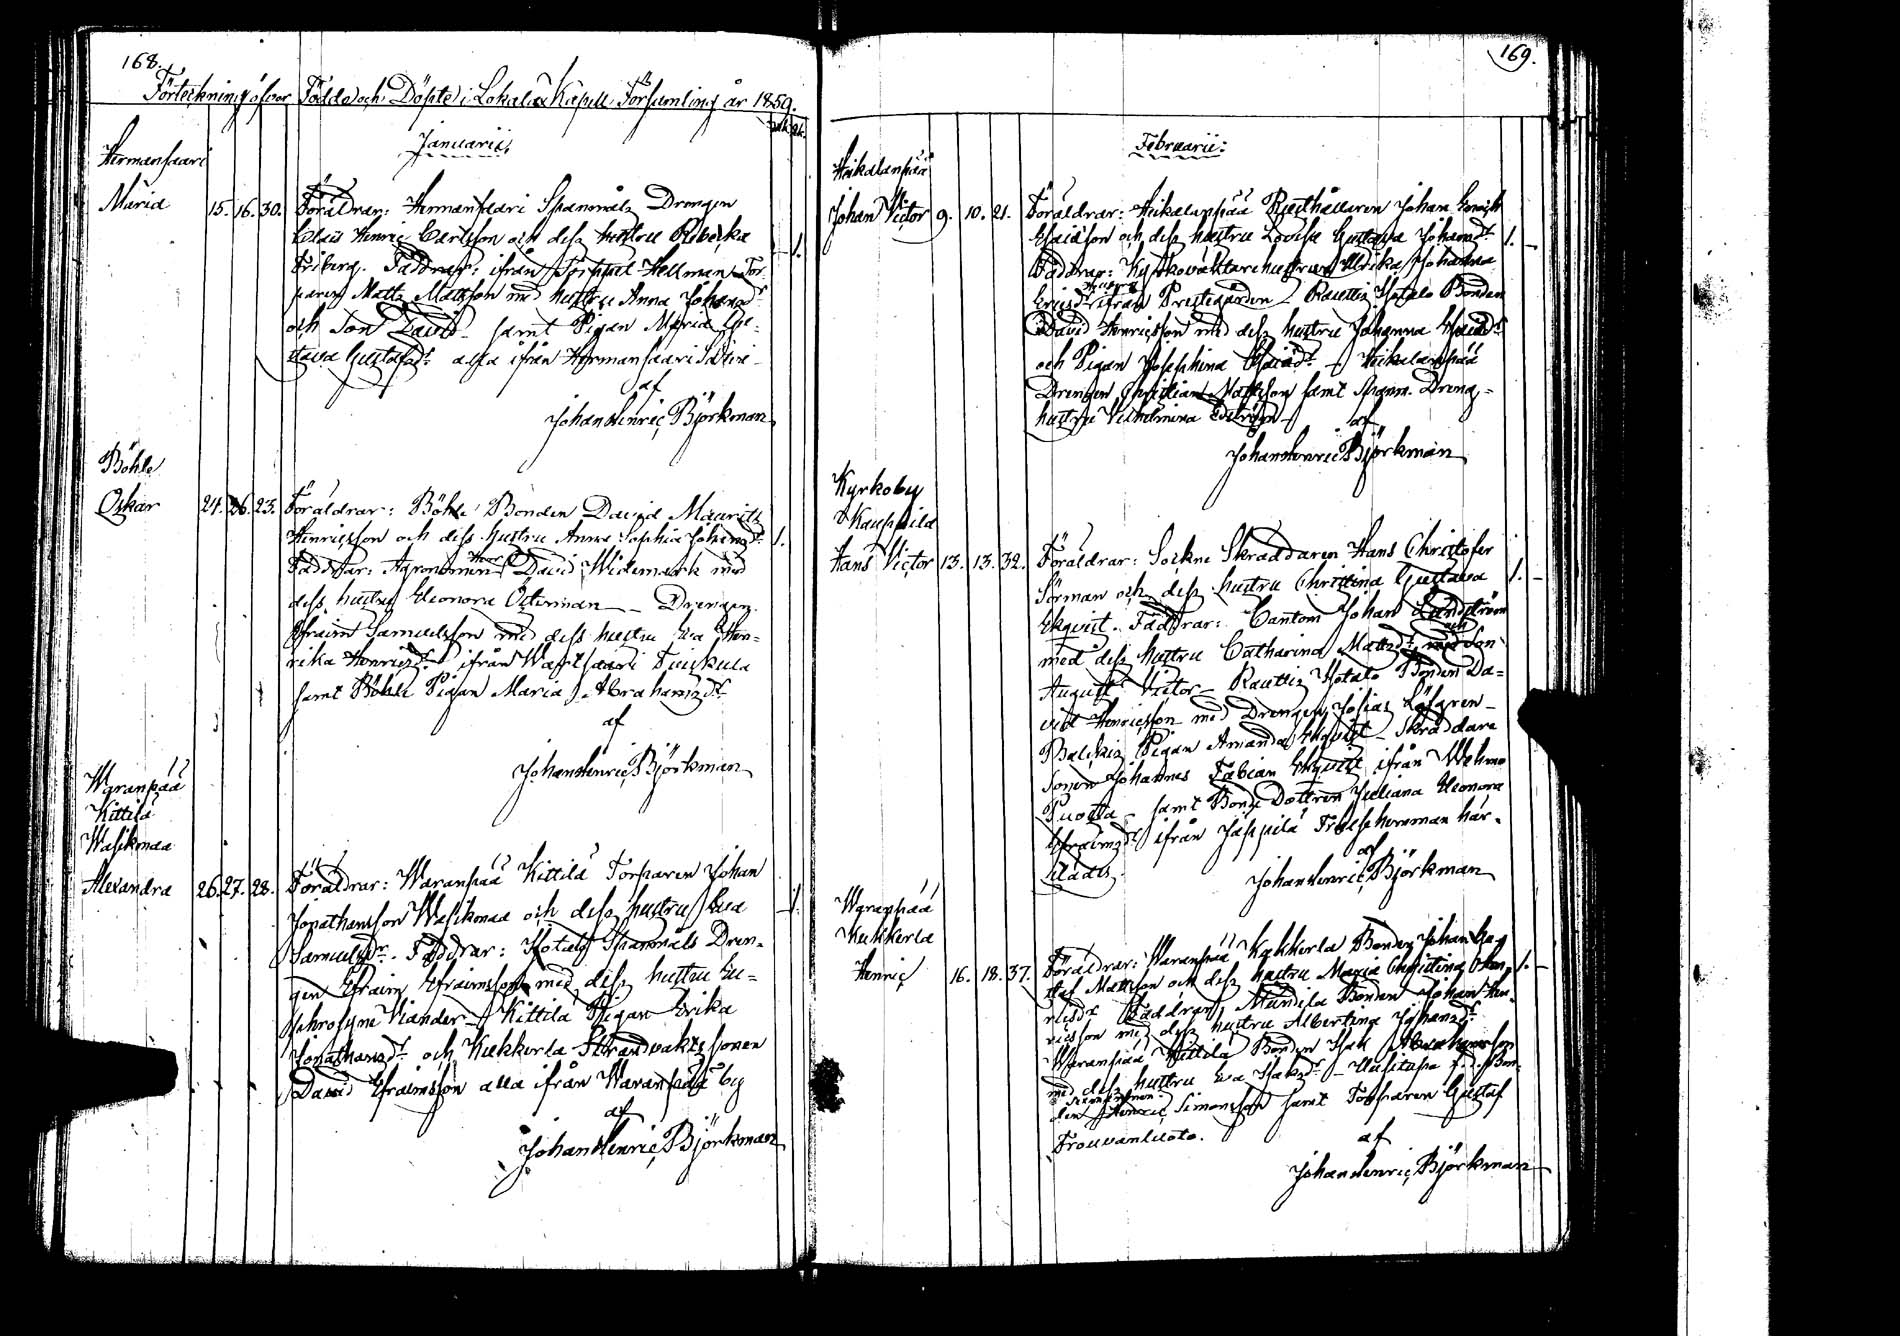 168.
Förteckning öfver Födde och Döpte i Lokalax Kapell Församling år 1859.
Januarii.
Hermansaari
Maria 15. 16. 30. Föräldrar: Hermansaari Spanmåls Drengen
Henric Carlsson och dess hustru Rebecka
Friberg. Faddrar: ifrån Torppal Hellman Tor-
paren Matts Mattsson med hustru Anna Johansdr
och Son David samt Pigan Maria Gu-
stava Gustafsdr alla ifrån Hermansaari
af
Johan Henric Björkman
Böhle
Oskar 24. 26. 23. Föräldrar: Böhle Bonden David Mauritz
Henricsson och dess hustru Anna Sophia Johansdr. 1.
Faddrar: Agronomen Herr David Widemark med
dess hustru Eleonora Österman Drengen
Efraim Samuelsson med dess hustru Eva Hen-
rika Henricsdr ifrån Wartsaari Tuiskula
samt Böhle Pigan Maria Abrahamsdr
af
Johan Henric Björkman
Waranpää
Kittilä
Wasikmaa
Alexandra 26. 27. 28. Föräldrar: Waranpää Kittilä Torparen Johan
Jonathansson Wasikmaa och dess hustru Eva 1.
Samuelsdr. Faddrar: Hotalo Spanmåls Dren-
gen Efraim Efraimsson med dess hustru Eu-
phrosyne Viander Kittilä Pigan Erika
Jonathansdr och Kukkerla Strandvakts sonen
David Efraimsson alla ifrån Waranpää by
af
Johan Henric Björkman
169.
Februarii:
Heikalanpää
Johan Victor 9. 10. 21. Föräldrar: Heikalanpää Rusthållaren Johan
Esaiasson och dess hustru Lovisa Gustava Johansdr 1.
Faddrar: Kyrkovaktare hustrun Ulrika Johanna
Ericsdr ifrån Prestegården Rauttis Hotalo Bonden
David Henricsson med dess hustru Johanna Esaiædr
och Pigan Josephina Esaiædr Heikalanpää
Drengen Christian Mattsson samt Spanm. Dreng-
hustru Vilhelmina
af
Johan Henric Björkman
Kyrkoby
Kauppila
Hans Victor 13. 13. 32. Föräldrar: Sockne Skräddaren Hans Christofer
Sörman och dess hustru Christina Gustava 1.
Ekqvist. Faddrar: Cantorn Johan Lundström
med dess hustru Catharina Mattsdr och Son
August Victor Rauttis Hotalo Bonden Da-
vid Henricsson med Drengen Josias Löfgren
Pigan Amanda Ekqvist Skräddare
Sonen Johannes Fabian Ekqvist ifrån Wehmo
Puotta samt Bonde Dottren Juliana Eleonora
Efraimsdr ifrån Jäppilä här-
städes.
af
Johan Henric Björkman
Waranpää
Kukkerla
Henric 16. 18. 37. Föräldrar: Waranpää Kukkerla Bonden Johan Gu-
staf Mattsson och dess hustru Maria Christina Hen- 1.
ricsdr Faddrar: Mandila Bonden Johan Hen-
ricsson med dess hustru Albertina Johansdr
Waranpää Kittilä Bonden Isak Abrahamsson
med dess hustru Eva Isaksdr Uusitupa f.d. Bon-
den Henric Simonsson samt Torparen Gustaf
Trouvanluoto.
af
Johan Henric Björkman